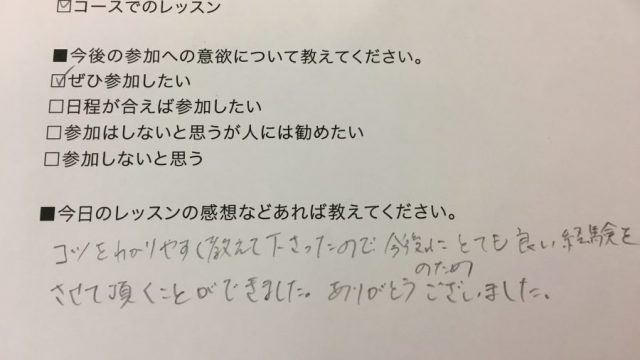 ☑コースでのレッスン
■今後の参加への意欲について教えてください。
☑ぜひ参加したい
□日程が合えば参加したい
□参加はしないと思うが人には勧めたい
□参加しないと思う
■今日のレッスンの感想などあれば教えてください。
コツをわかりやすく教えて下さったので今後のためにとても良い経験を
させて頂くことができました。ありがとうございました。